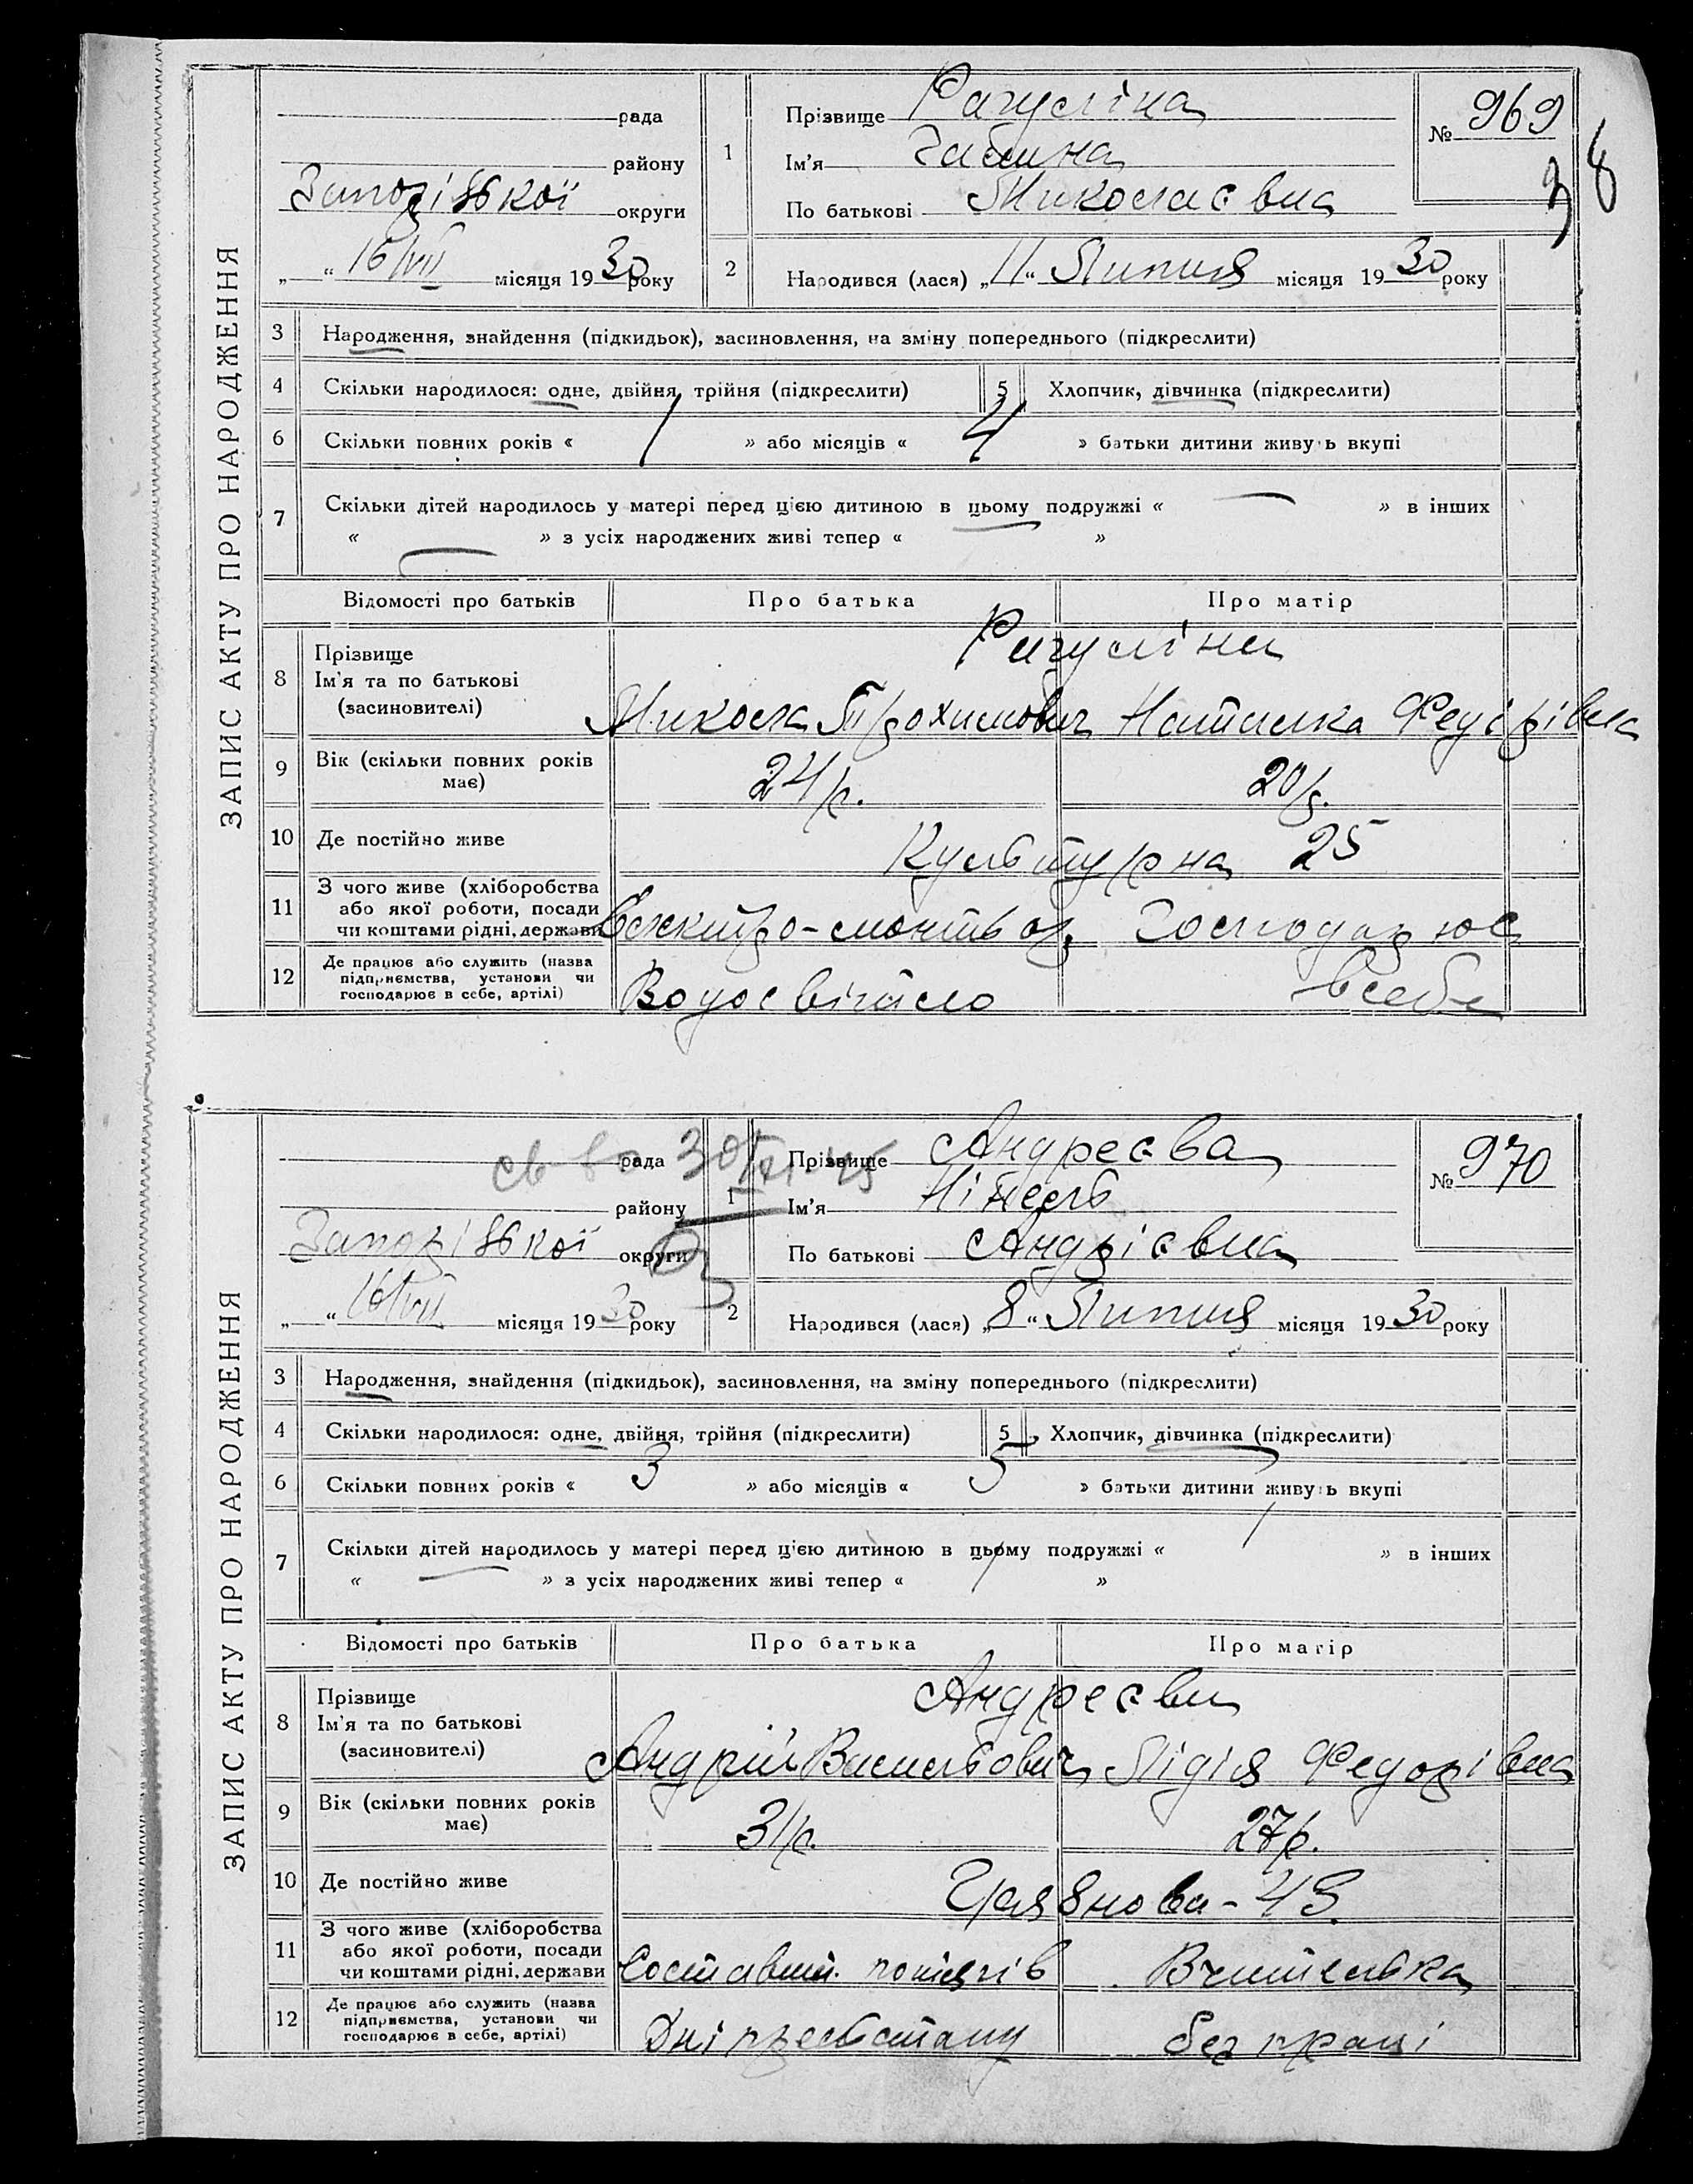 ЗАПИС АКТУ ПРО НАРОДЖЕННЯ
рада
району
Запорізької округи
„ “ 16/VII місяця 1930 року
1 Прізвище Рагуліна
Ім'я Галина
По батькові Миколаєвна
№ 969
38
2 Народився (лася) „11“ Липня місяця 1930 року
3 Народження, знайдення (підкидьок), засиновлення, на зміну попереднього (підкреслити)
4 Скільки народилося: одне, двійня, трійня (підкреслити) 5 Хлопчик, дівчинка (підкреслити)
6 Скільки повних років « 1 » або місяців « 4 » батьки дитини живуть вкупі
7 Скільки дітей народилось у матері перед цією дитиною в цьому подружжі « — » в інших
« — » з усіх народжених живі тепер « »
Відомості про батьків Про батька Про матір
8 Прізвище
Ім'я та по батькові
(засиновителі)
Рагуліни
Микола Трохимович Наталка Федорівна
9 Вік (скільки повних років має) 24 р. 20 р.
10 Де постійно живе Культурна 25
11 З чого живе (хліборобства
або якої роботи, посади
чи коштами рідні, держави
Електро-монтьор Господарює
12 Де працює або служить (назва
підприємства, установи чи
господарює в себе, артілі)
Водосвітло в себе
ЗАПИС АКТУ ПРО НАРОДЖЕННЯ
рада
району
Запорізької округи
св-во 30/VI-45
„ “ 16/VII місяця 1930 року
1 Прізвище Андреєва
Ім'я Нінель
По батькові Андрієвна
№ 970
2 Народився (лася) „8“ Липня місяця 1930 року
3 Народження, знайдення (підкидьок), засиновлення, на зміну попереднього (підкреслити)
4 Скільки народилося: одне, двійня, трійня (підкреслити) 5 Хлопчик, дівчинка (підкреслити)
6 Скільки повних років « 3 » або місяців « 5 » батьки дитини живуть вкупі
7 Скільки дітей народилось у матері перед цією дитиною в цьому подружжі « 1 » в інших
« — » з усіх народжених живі тепер « 1 »
Відомості про батьків Про батька Про матір
8 Прізвище
Ім'я та по батькові
(засиновителі)
Андреєви
Андрій Васильович Лідія Федорівна
9 Вік (скільки повних років має) 31 р. 27 р.
10 Де постійно живе
11 З чого живе (хліборобства
або якої роботи, посади
чи коштами рідні, держави
Составит. потягів Вчителька
12 Де працює або служить (назва
підприємства, установи чи
господарює в себе, артілі)
Дніпрельстану без праці